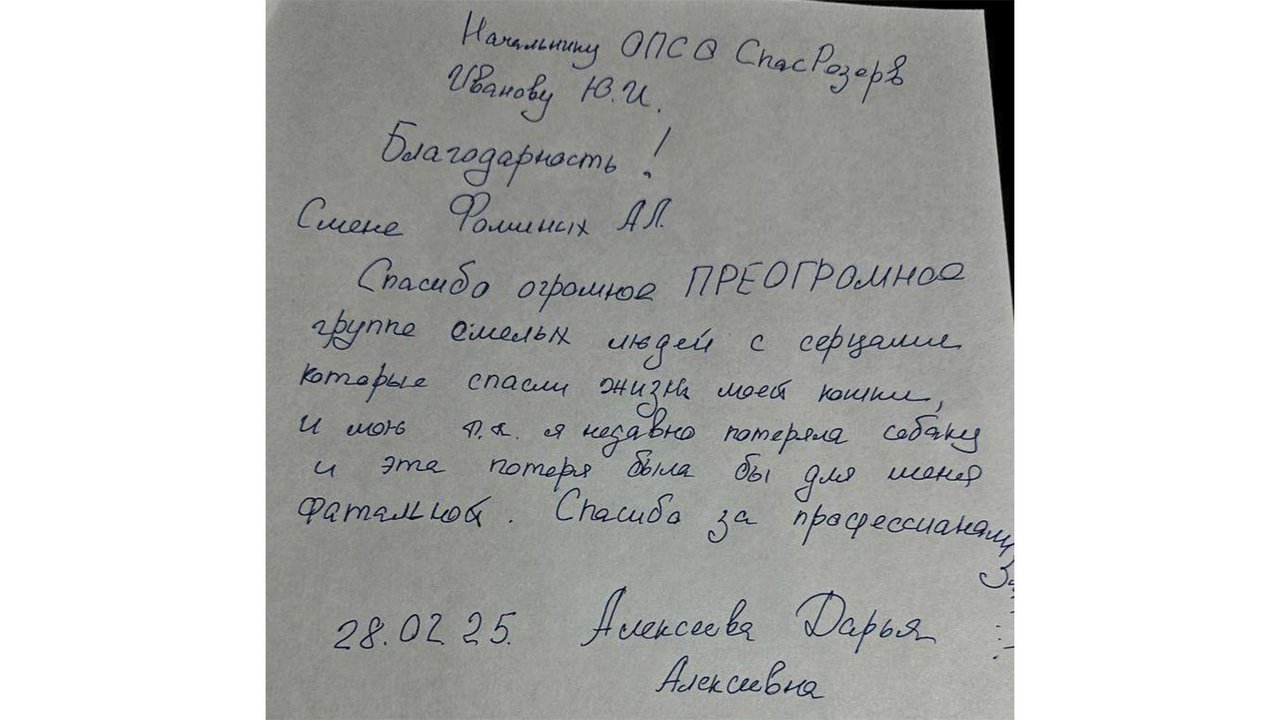 Начальнику ОПСО СпасРезерв
Иванову Ю.И.
Благодарность!
Смене Фоминых А.Л.
Спасибо огромное ПРЕОГРОМНОЕ
группе смелых людей с серцами
которые спасли жизнь моей кошки,
и мою т.к. я недавно потеряла собаку
и эта потеря была бы для меня
фатальной. Спасибо за професcионали
28.02.25. Алексеева Дарья
Алексеевна